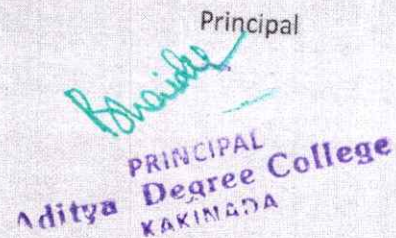 Principal
PRINCIPAL
Aditya Degree College
KAKINADA